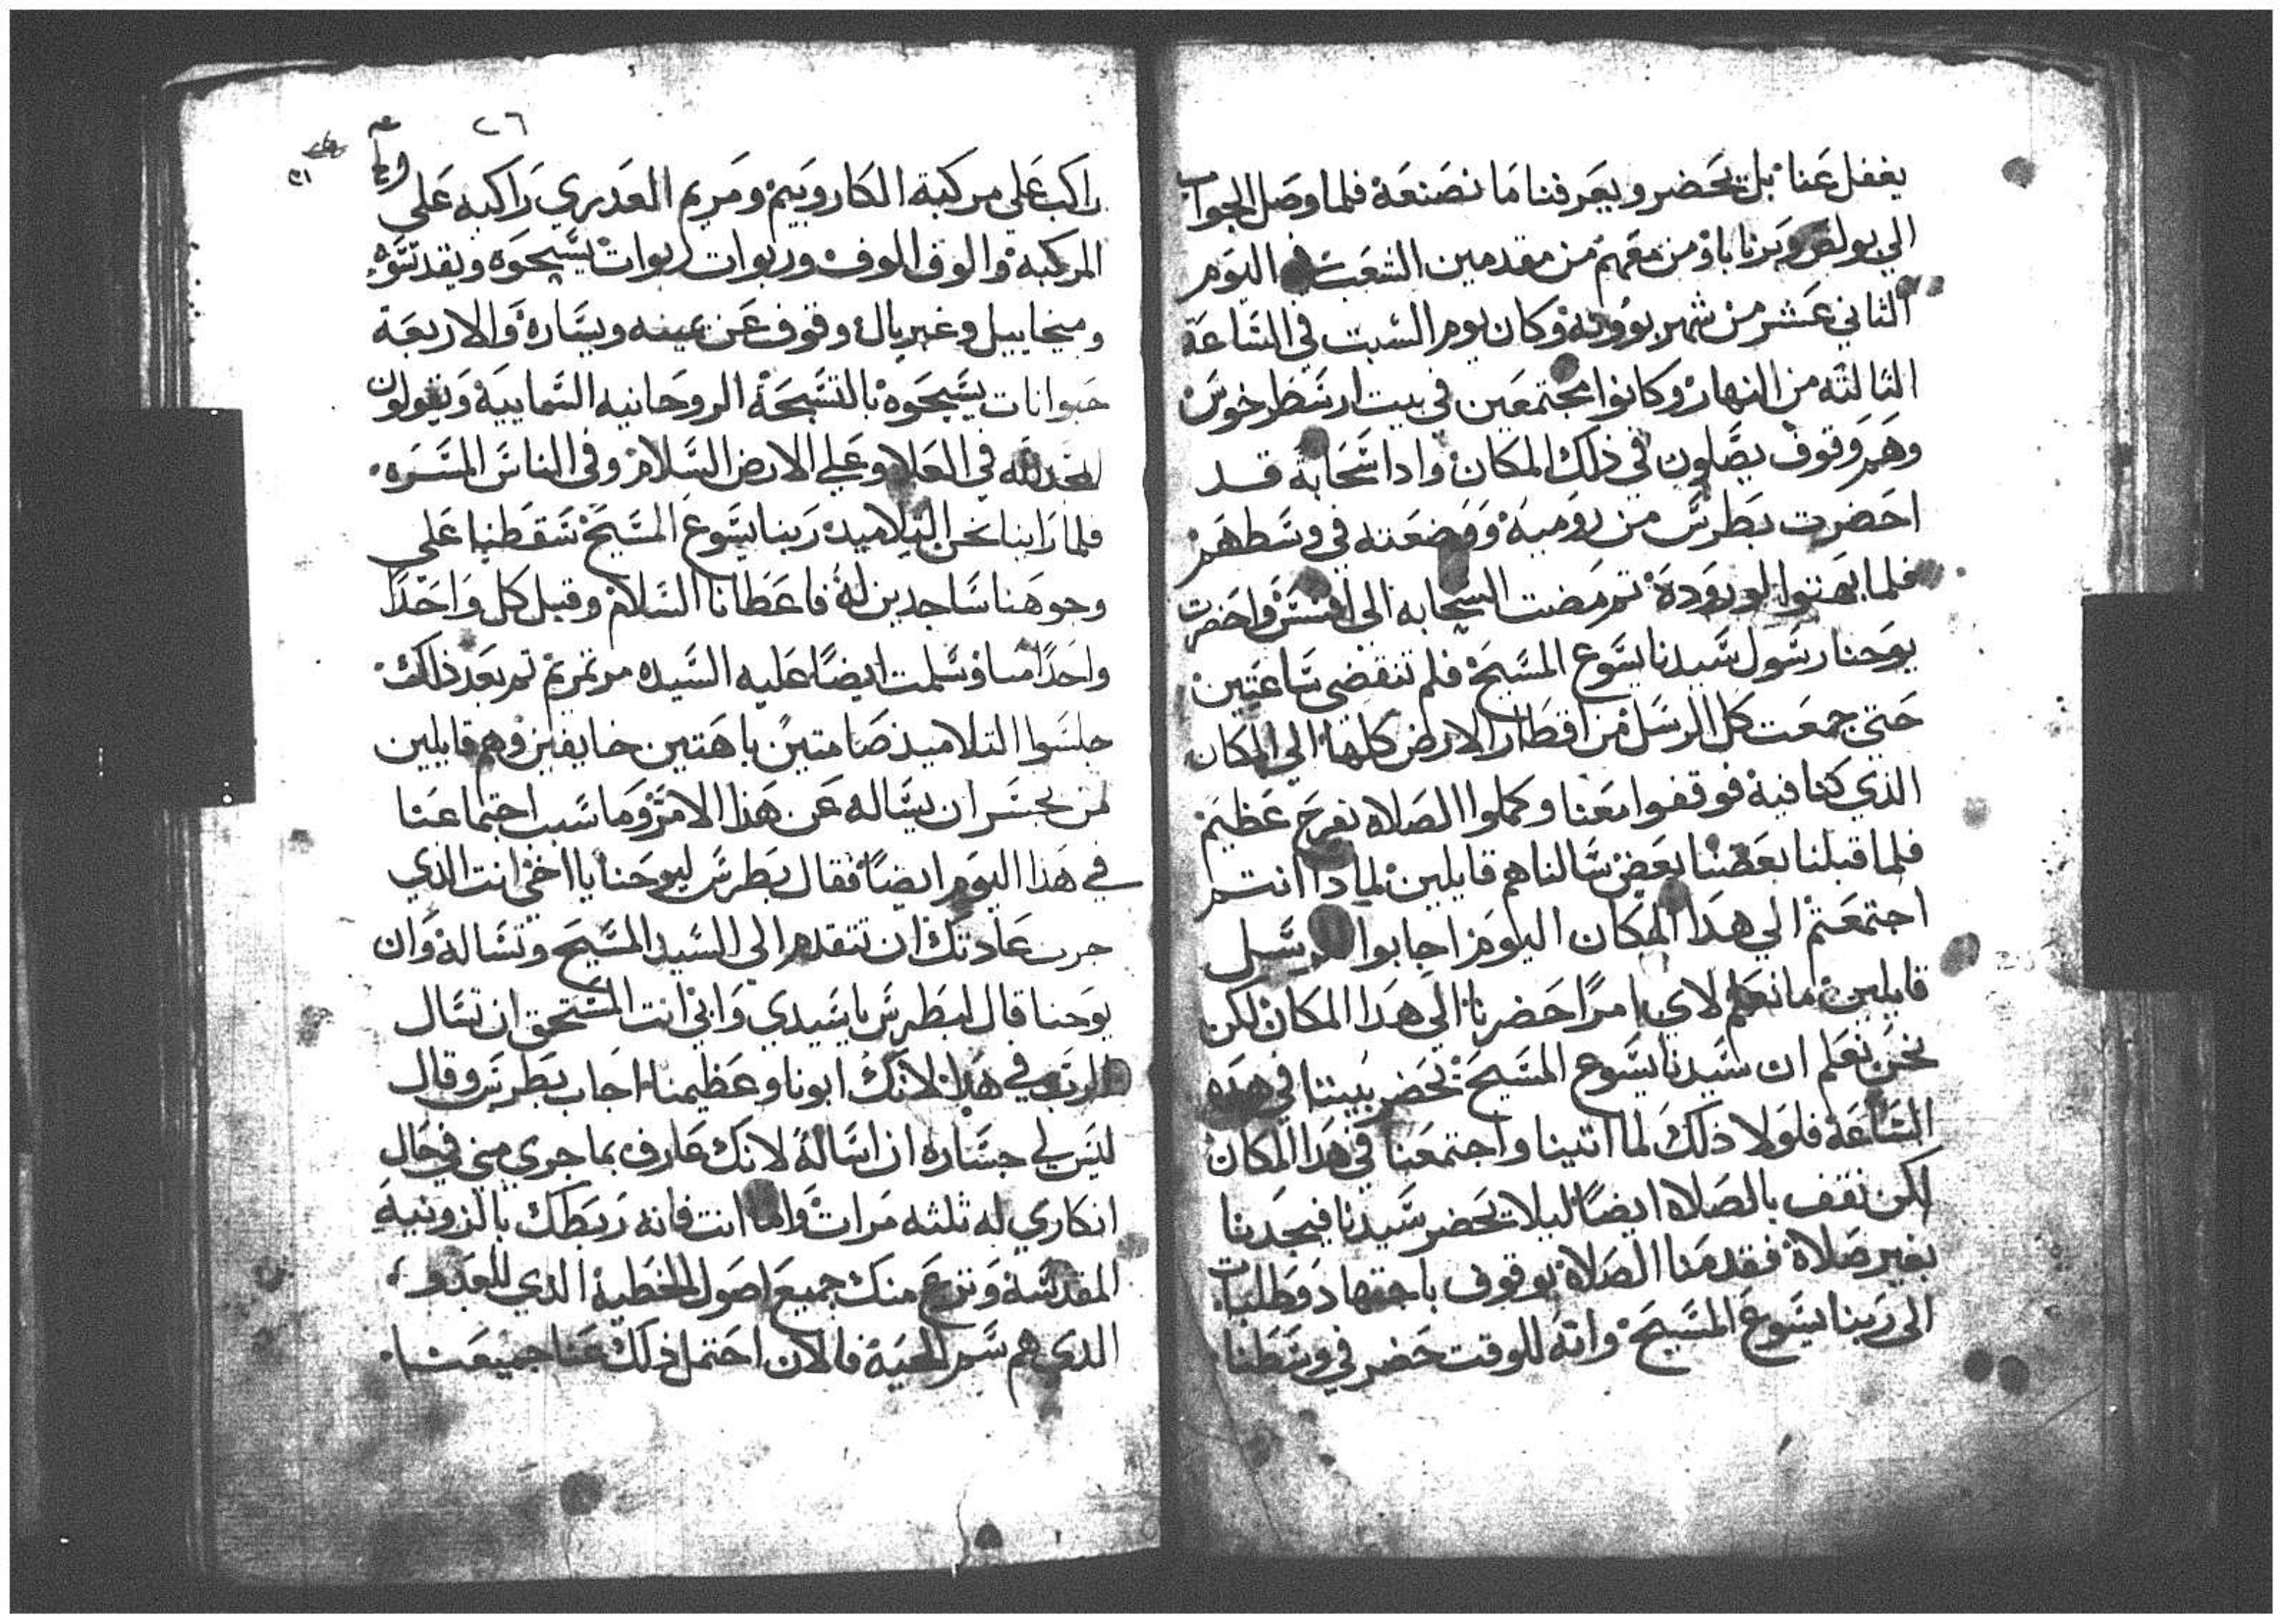 يغفل عنا بل يحضر ويعرفنا ما نصنعه فلما وصل الجواب
الي بولص وبرناباؤ من معهم من مقدمين الشعب في اليوم
الثاني عشر من شهر بوونه وكان يوم السبت في الساعة
الثالثه من النهار وكانوا مجتمعين في بيت ارسطرخوس
وهم وقوف يصلون في ذلك المكان واذا سحابة قد
احضرت بطرس من رومية ووضعته في وسطهم
فلما بهتوا لوروده ثم مضت السحابه الى افسس واحضرت
يوحنا رسول سيدنا يسوع المسيح فلم تنقضي ساعتين
حتي جمعت كل الرسل من اقطار الارض كلها الي المكان
الذي كنا فيه فوقفوا معنا وكملوا الصلاه بفرح عظيم
فلما قبلنا بعضنا بعض سالناهم قايلين لماذا انتم
اجتمعتم الي هذا المكان اليوم اجابوا الرسل
قايلين ما نعلم لاي امرا حضرنا الي هذا المكان لكن
نحن نعلم ان سيدنا يسوع المسيح يحضر بيننا في هذه
الساعة فلولا ذلك لما اتينا واجتمعنا في هذا المكان
لكن نقف بالصلاه ايضا ليلا يحضر سيدنا فيجدنا
بغير صلاة فقدمنا الصلاة بوقوف باجتهاد وطلبات
الى ربنا يسوع المسيح وانه للوقت حضر في وسطنا
٢٦
راكب على مركبة الكاروبيم ومريم العدري راكبه على
المركبه والوف الوف وربوات ربوات يسبحوه ويقدسوه
وميخاييل وغبريال وقوف عن يمينه ويساره والاربعة
حيوانات يسبحوه بالتسبحة الروحانيه السماييه ويقولون
المجد لله في العلا وعلي الارض السلام وفي الناس المسره
فلما راينا نحن التلاميد ربنا يسوع المسيح سقطنا على
وجوهنا ساجدين له فاعطانا السلام وقبل كل واحدا
واحدا منا وسلمت ايضا عليه السيده مرتمريم ثم بعد ذلك
جلسوا التلاميذ صامتين باهتين خايفين وهم قايلين
من يجسر ان يساله عن هذا الامر وما سبب اجتماعنا
في هذا اليوم ايضا فقال بطرس ليوحنا يا اخي انت الذي
جرت عادتك ان تتقدم الى السيد المسيح وتساله وان
يوحنا قال لبطرس يا سيدي وابي انت المستحق ان تسال
الرب في هذا لانك ابونا وعظيمنا اجاب بطرس وقال
ليس لي جساره ان اساله لانك عارف بما جري مني في حال
انكاري له ثلثه مرات واما انت فانه ربطك بالزونية
المقدسة ونزع منك جميع اصول الخطية الذي للعدو
الذي هم سم الحية فالان احتمل ذلك عنا جميعنا